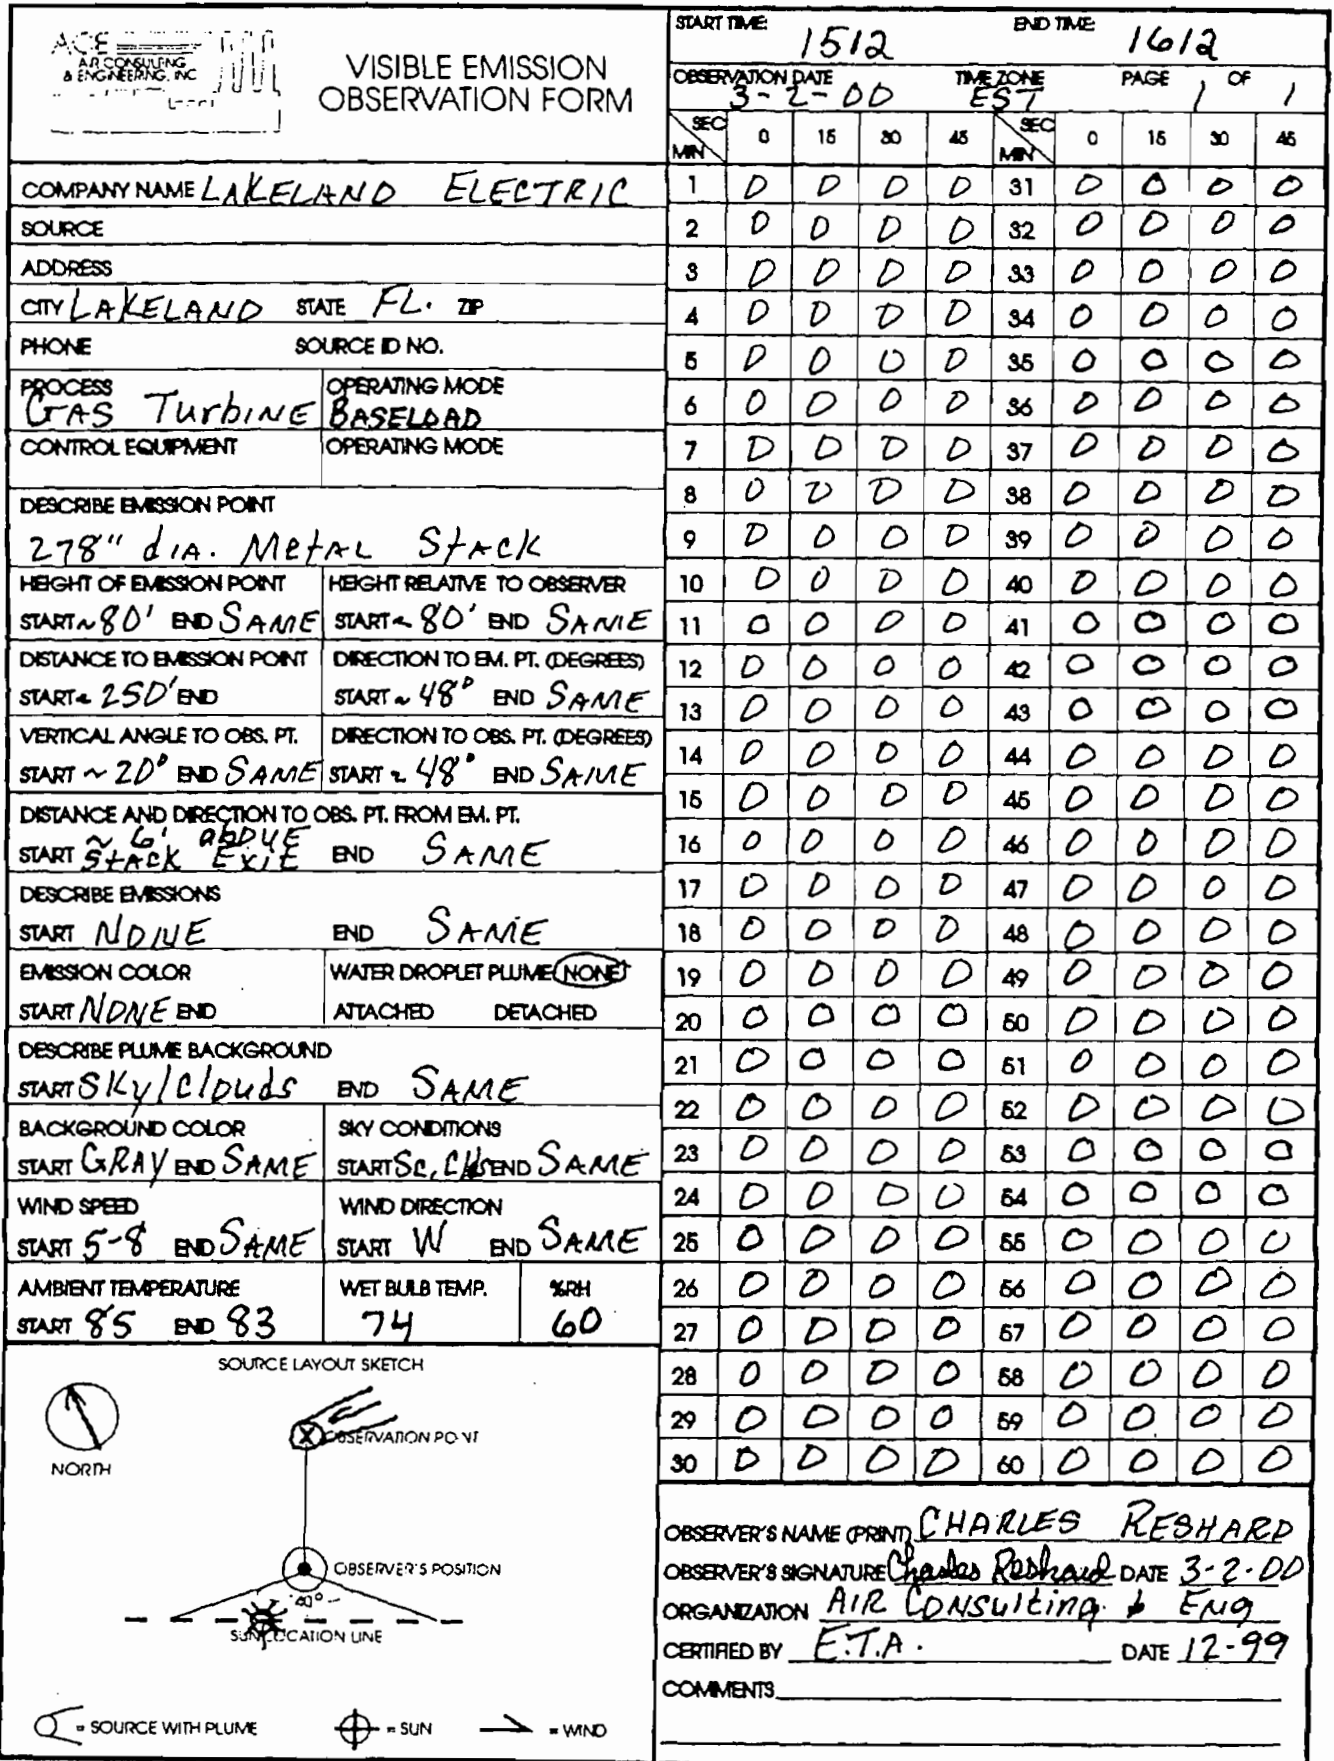 ACE
AIR CONSULTING
& ENGINEERING, INC
VISIBLE EMISSION
OBSERVATION FORM
COMPANY NAME LAKELAND ELECTRIC
SOURCE
ADDRESS
CITY LAKELAND STATE FL. ZIP
PHONE SOURCE ID NO.
PROCESS OPERATING MODE
GAS TurbINE BASELOAD
CONTROL EQUIPMENT OPERATING MODE
DESCRIBE EMISSION POINT
278" dIA. MetAL StAcK
HEIGHT OF EMISSION POINT HEIGHT RELATIVE TO OBSERVER
START ~80' END SAME START ~80' END SAME
DISTANCE TO EMISSION POINT DIRECTION TO EM. PT. (DEGREES)
START ~250' END START ~48° END SAME
VERTICAL ANGLE TO OBS. PT. DIRECTION TO OBS. PT. (DEGREES)
START ~20° END SAME START ~48° END SAME
DISTANCE AND DIRECTION TO OBS. PT. FROM EM. PT.
START ~6' abOVE StACK EXIt END SAME
DESCRIBE EMISSIONS
START NONE END SAME
EMISSION COLOR WATER DROPLET PLUME NONE
START NONE END ATTACHED DETACHED
DESCRIBE PLUME BACKGROUND
START SKy/Clouds END SAME
BACKGROUND COLOR SKY CONDITIONS
START GRAY END SAME START Sc. Clds END SAME
WIND SPEED WIND DIRECTION
START 5-8 END SAME START W END SAME
AMBIENT TEMPERATURE WET BULB TEMP. %RH
START 85 END 83 74 60
SOURCE LAYOUT SKETCH
NORTH
OBSERVATION POINT
OBSERVER'S POSITION
40°
SUN LOCATION LINE
= SOURCE WITH PLUME = SUN = WIND
START TIME: 1512 END TIME: 1612
OBSERVATION DATE TIME ZONE PAGE OF
3-2-00 EST 1 1
SEC MIN 0 15 30 45 SEC MIN 0 15 30 45
1 0 0 0 0 31 0 0 0 0
2 0 0 0 0 32 0 0 0 0
3 0 0 0 0 33 0 0 0 0
4 0 0 0 0 34 0 0 0 0
5 0 0 0 0 35 0 0 0 0
6 0 0 0 0 36 0 0 0 0
7 0 0 0 0 37 0 0 0 0
8 0 0 0 0 38 0 0 0 0
9 0 0 0 0 39 0 0 0 0
10 0 0 0 0 40 0 0 0 0
11 0 0 0 0 41 0 0 0 0
12 0 0 0 0 42 0 0 0 0
13 0 0 0 0 43 0 0 0 0
14 0 0 0 0 44 0 0 0 0
15 0 0 0 0 45 0 0 0 0
16 0 0 0 0 46 0 0 0 0
17 0 0 0 0 47 0 0 0 0
18 0 0 0 0 48 0 0 0 0
19 0 0 0 0 49 0 0 0 0
20 0 0 0 0 50 0 0 0 0
21 0 0 0 0 51 0 0 0 0
22 0 0 0 0 52 0 0 0 0
23 0 0 0 0 53 0 0 0 0
24 0 0 0 0 54 0 0 0 0
25 0 0 0 0 55 0 0 0 0
26 0 0 0 0 56 0 0 0 0
27 0 0 0 0 57 0 0 0 0
28 0 0 0 0 58 0 0 0 0
29 0 0 0 0 59 0 0 0 0
30 0 0 0 0 60 0 0 0 0
OBSERVER'S NAME (PRINT) CHARLES RESHARD
OBSERVER'S SIGNATURE Charles Reshard DATE 3-2-00
ORGANIZATION AIR CONSulting & ENg
CERTIFIED BY E.T.A. DATE 12-99
COMMENTS